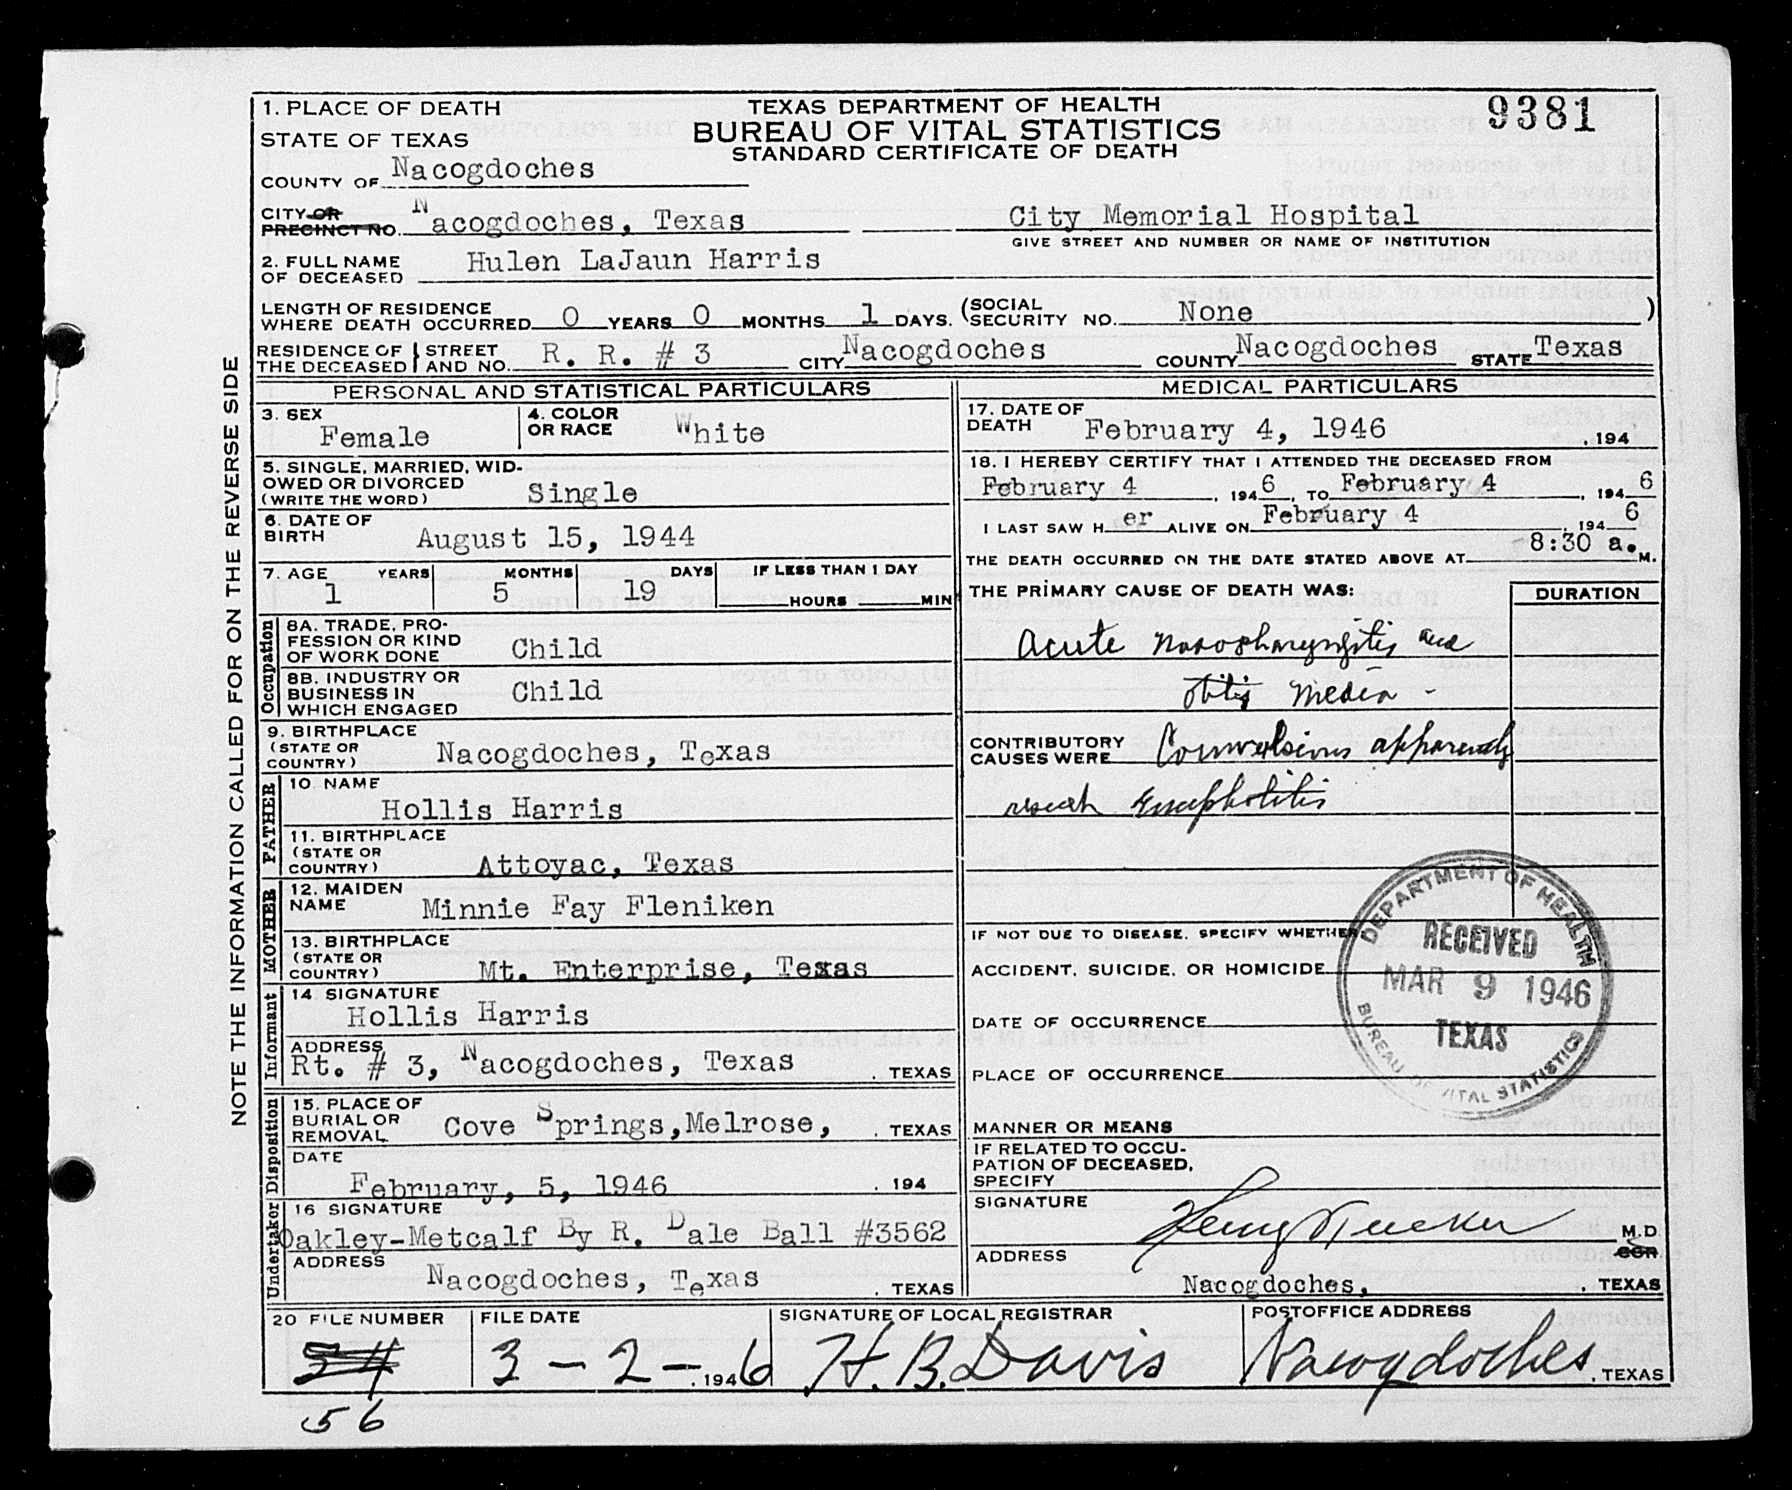 1. PLACE OF DEATH
STATE OF TEXAS
TEXAS DEPARTMENT OF HEALTH
BUREAU OF VITAL STATISTICS
STANDARD CERTIFICATE OF DEATH
9381
COUNTY OF Nacogdoches
CITY OR PRECINCT NO. Nacogdoches, Texas
City Memorial Hospital
GIVE STREET AND NUMBER OR NAME OF INSTITUTION
2. FULL NAME OF DECEASED Hulen LaJaun Harris
LENGTH OF RESIDENCE
WHERE DEATH OCCURRED 0 YEARS 0 MONTHS 1 DAYS. (SOCIAL SECURITY NO. None )
RESIDENCE OF THE DECEASED STREET AND NO. R. R. # 3 CITY Nacogdoches COUNTY Nacogdoches STATE Texas
NOTE THE INFORMATION CALLED FOR ON THE REVERSE SIDE
PERSONAL AND STATISTICAL PARTICULARS
3. SEX Female
4. COLOR OR RACE White
5. SINGLE, MARRIED, WID-
OWED OR DIVORCED
(WRITE THE WORD) Single
6. DATE OF BIRTH August 15, 1944
7. AGE YEARS MONTHS DAYS IF LESS THAN 1 DAY
1 5 19 HOURS MIN
Occupation
8A. TRADE, PRO-
FESSION OR KIND
OF WORK DONE Child
8B. INDUSTRY OR
BUSINESS IN
WHICH ENGAGED Child
9. BIRTHPLACE
(STATE OR
COUNTRY) Nacogdoches, Texas
FATHER
10 NAME
Hollis Harris
11. BIRTHPLACE
(STATE OR
COUNTRY) Attoyac, Texas
MOTHER
12. MAIDEN
NAME Minnie Fay Fleniken
13. BIRTHPLACE
(STATE OR
COUNTRY) Mt. Enterprise, Texas
Informant
14 SIGNATURE
Hollis Harris
ADDRESS
Rt. # 3, Nacogdoches, Texas . TEXAS
Disposition
15. PLACE OF
BURIAL OR
REMOVAL Cove Springs,Melrose, . TEXAS
DATE
February, 5, 1946 . 194
Undertaker
16 SIGNATURE
Oakley-Metcalf By R. Dale Ball #3562
ADDRESS
Nacogdoches, Texas . TEXAS
MEDICAL PARTICULARS
17. DATE OF
DEATH February 4, 1946 , 194
18. I HEREBY CERTIFY THAT I ATTENDED THE DECEASED FROM
February 4 , 194 6 , TO February 4 , 194 6
I LAST SAW H er ALIVE ON February 4 , 194 6
THE DEATH OCCURRED ON THE DATE STATED ABOVE AT 8:30 a. M.
THE PRIMARY CAUSE OF DEATH WAS:
DURATION
Acute Nasopharyngitis and
Otitis Media -
CONTRIBUTORY
CAUSES WERE Convulsions apparently
result Encephalitis
IF NOT DUE TO DISEASE, SPECIFY WHETHER
ACCIDENT, SUICIDE, OR HOMICIDE
DATE OF OCCURRENCE
PLACE OF OCCURRENCE
DEPARTMENT OF HEALTH
RECEIVED
MAR 9 1946
TEXAS
BUREAU OF VITAL STATISTICS
MANNER OR MEANS
IF RELATED TO OCCU-
PATION OF DECEASED,
SPECIFY
SIGNATURE Henry Tucker M.D.
COR
ADDRESS
Nacogdoches, . TEXAS
20 FILE NUMBER
34
56
FILE DATE
3-2- . 1946
SIGNATURE OF LOCAL REGISTRAR
H. B. Davis
POSTOFFICE ADDRESS
Nacogdoches . TEXAS